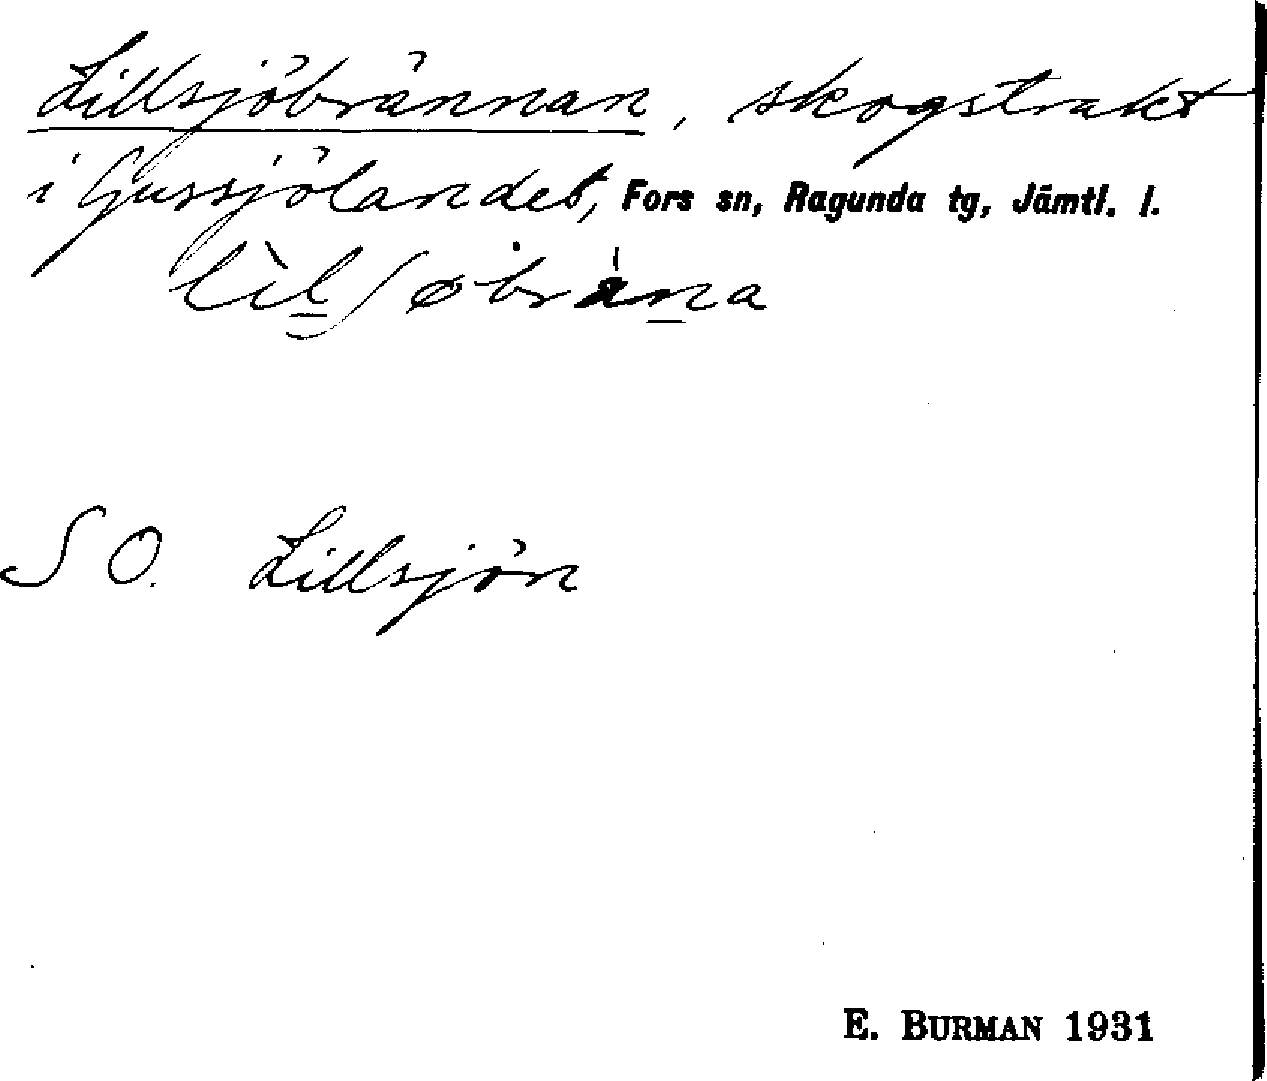 Lillsjöbrännan, skogstrakt
i Gussjölandet, Fors sn, Ragunda tg, Jämtl. l.
SO. Lillsjön
E. BURMAN 1931